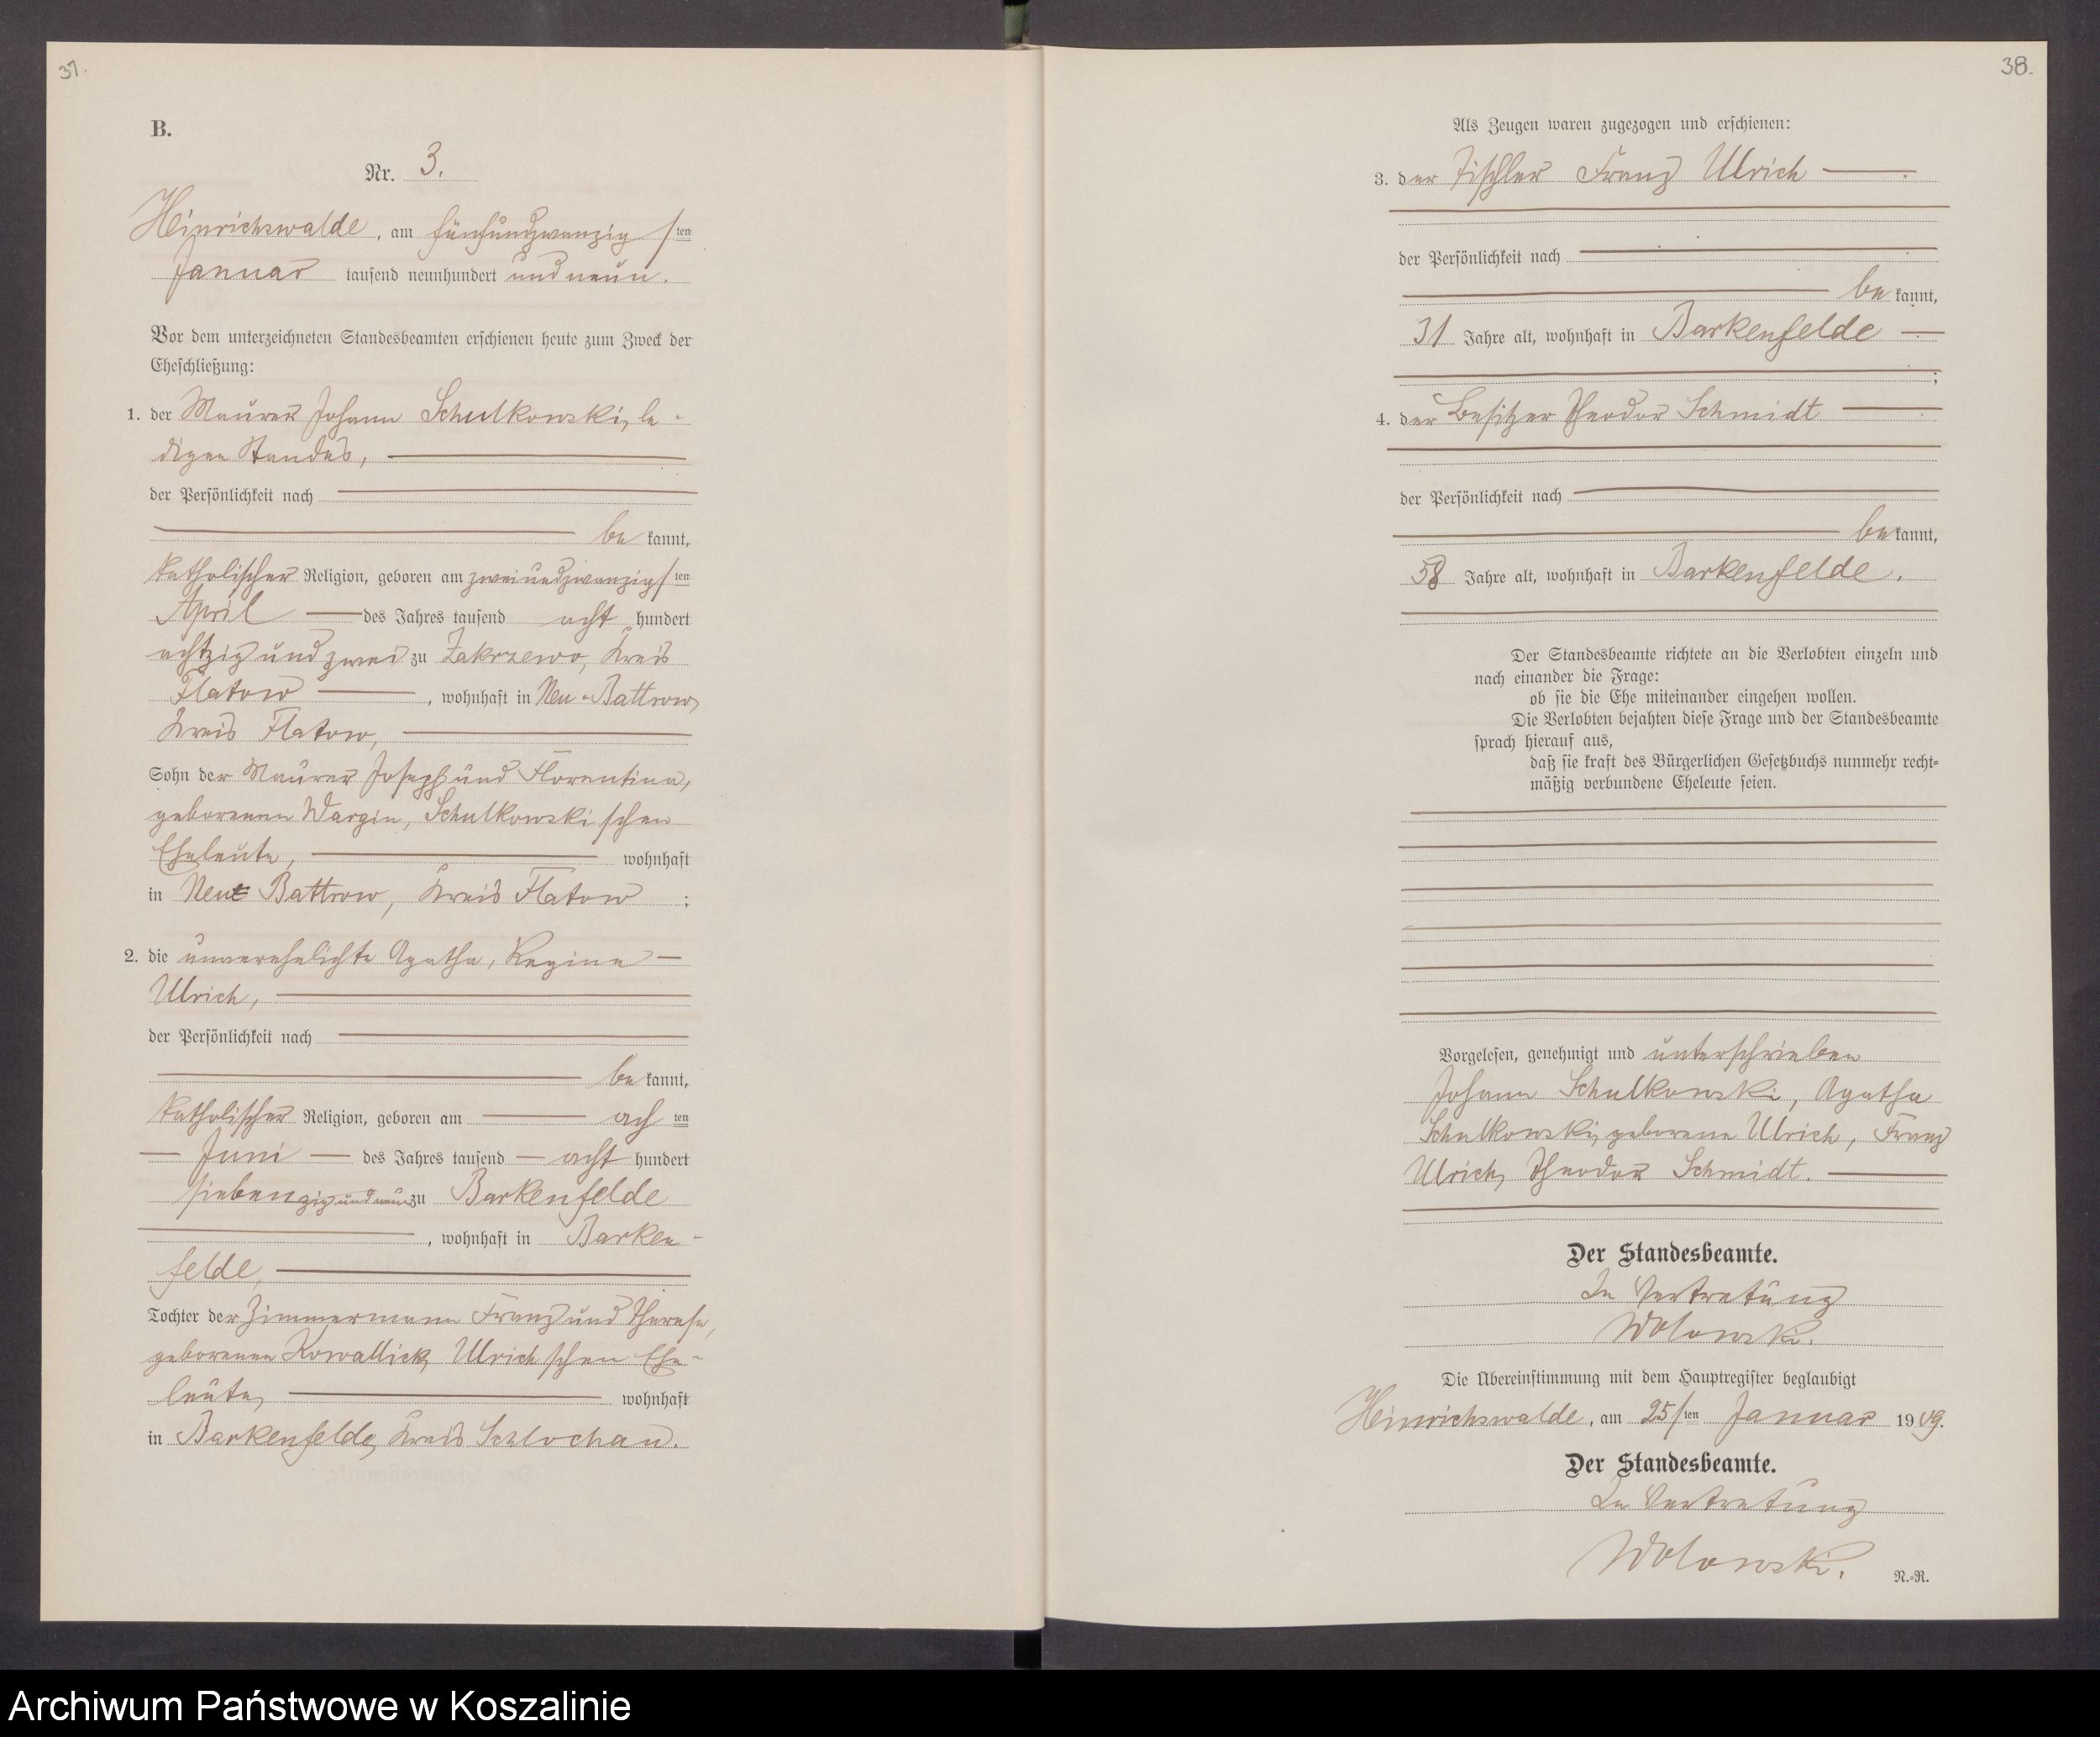 37.
B.
Nr. 3.
Heinrichswalde, am fünfundzwanzig sten
Januar tausend neunhundert und neun.
Vor dem unterzeichneten Standesbeamten erschienen heute zum Zweck der
Eheschließung:
1. der Maurer Johann Schulkowski, le-
digen Standes,
der Persönlichkeit nach
be kannt,
katholischer Religion, geboren am zweiundzwanzigsten
April des Jahres tausend acht hundert
achtzig und zwei zu Zakrzewo, Kreis
Flatow, wohnhaft in Neu-Battrow,
Kreis Flatow,
Sohn der Maurer Joseph und Florentina,
geborenen Wargin, Schulkowski'schen
Eheleute, wohnhaft
in Neu Battrow, Kreis Flatow;
2. die unverehelichte Agatha, Regina
Ulrich,
der Persönlichkeit nach
be kannt,
katholischer Religion, geboren am ach ten
Juni des Jahres tausend acht hundert
siebenzig und neun zu Barkenfelde
, wohnhaft in Barken-
felde,
Tochter der Zimmermann Franz und Therese,
geborenen Kowallick, Ulrich'schen Ehe-
leute, wohnhaft
in Barkenfelde, Kreis Schlochau.
38.
Als Zeugen waren zugezogen und erschienen:
3. der Tischler Franz Ulrich
der Persönlichkeit nach
be kannt,
31 Jahre alt, wohnhaft in Barkenfelde
;
4. der Besitzer Theodor Schmidt
der Persönlichkeit nach
be kannt,
58 Jahre alt, wohnhaft in Barkenfelde.
Der Standesbeamte richtete an die Verlobten einzeln und
nach einander die Frage:
ob sie die Ehe miteinander eingehen wollen.
Die Verlobten bejahten diese Frage und der Standesbeamte
sprach hierauf aus,
daß sie kraft des Bürgerlichen Gesetzbuchs nunmehr recht=
mäßig verbundene Eheleute seien.
Vorgelesen, genehmigt und unterschrieben
Johann Schulkowski, Agatha
Schulkowski, geborene Ulrich, Franz
Ulrich, Theodor Schmidt.
Der Standesbeamte.
In Vertretung
Wolowski.
Die Übereinstimmung mit dem Hauptregister beglaubigt
Heinrichswalde, am 25sten Januar 1909.
Der Standesbeamte.
In Vertretung
Wolowski.
N.=R.
Archiwum Państwowe w Koszalinie